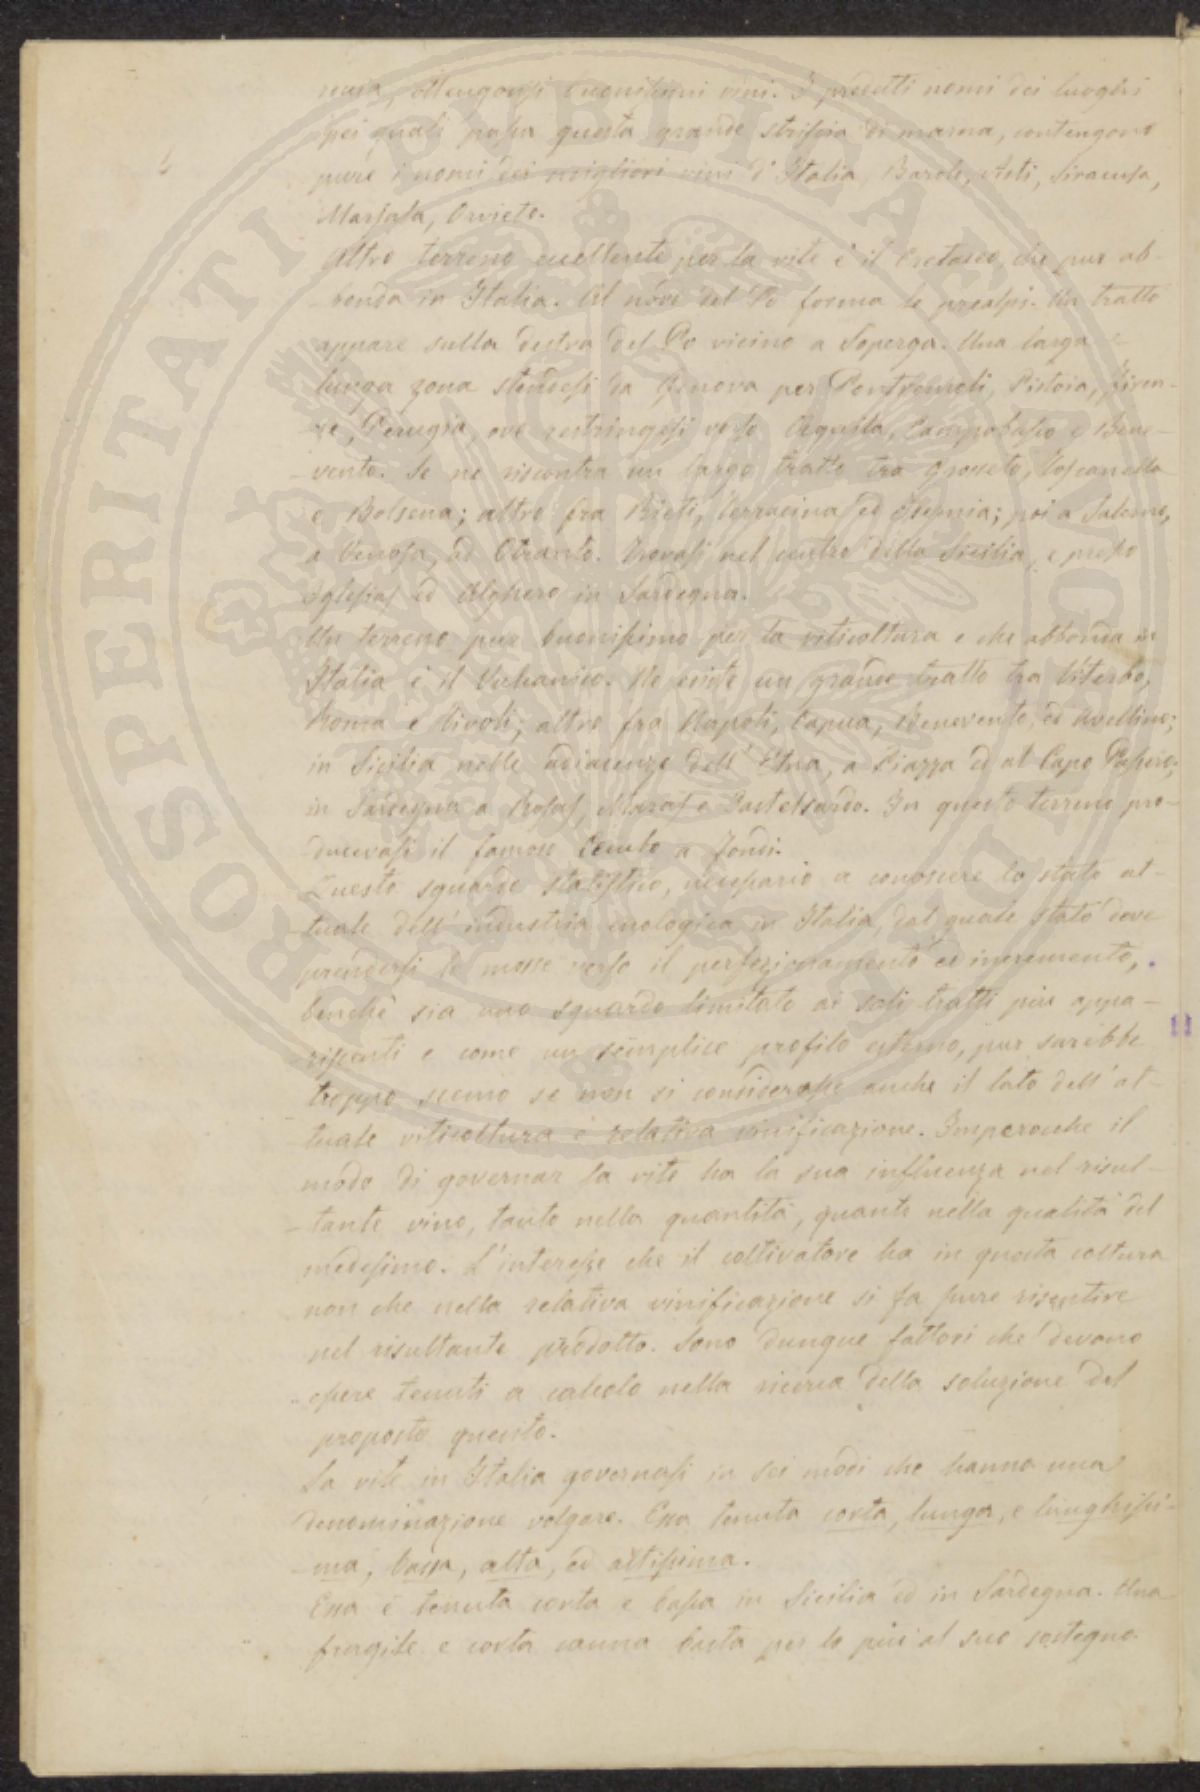 ottengonsi buonissimi vini. I predetti nomi dei luoghi
pei quali passa questa grande striscia di marna, contengono
pure i nomi dei migliori vini d'Italia, Barolo, Asti, Siracusa,
Marsala, Orvieto.
Altro terreno eccellente per la vite è il Cretaceo, che pur ab-
-bonda in Italia. Al nord del Po forma le prealpi. Un tratto
appare sulla destra del Po vicino a Soperga. Una larga e
lunga zona stendesi da Genova per Pontremoli, Pistoia, Firen-
-ze, Perugia, ove restringesi verso Aquila, Campobasso e Bene-
-vento. Se ne riscontra un largo tratto tra Grosseto, Toscanella
e Bolsena; altro fra Rieti, Terracina ed Isernia; poi a Salerno,
a Venosa, ad Otranto. Trovasi nel centro della Sicilia, e presso
Iglesias ed Alghero in Sardegna.
Un terreno pur buonissimo per la viticoltura e che abbonda in
Italia è il Vulcanico. Ne esiste un grande tratto tra Viterbo,
Roma e Tivoli; altro fra Napoli, Capua, Benevento, ed Avellino;
in Sicilia nelle adiacenze dell'Etna, a Piazza ed al Capo Passero;
in Sardegna a Castelsardo. In questo terreno pro-
-ducevasi il famoso Cecubo a Fondi.
Questo sguardo statistico, necessario a conoscere lo stato at-
-tuale dell'industria enologica in Italia, dal quale stato deve
prendersi le mosse verso il perfezionamento ed incremento,
benchè sia uno sguardo limitato ai soli tratti più appa-
-riscenti e come un semplice profilo esterno, pur sarebbe
troppo scemo se non si considerasse anche il lato dell'at-
-tuale viticoltura e relativa vinificazione. Imperocche il
modo di governar la vite ha la sua influenza nel risul-
-tante vino, tanto nella quantità, quanto nella qualità del
medesimo. L'interesse che il coltivatore ha in questa coltura
non che nella relativa vinificazione si fa pure risentire
nel risultante prodotto. Sono dunque fattori che devono
essere tenuti a calcolo nella ricerca della soluzione del
proposto quesito.
La vite in Italia governasi in sei modi che hanno una
denominazione volgare. Essa tenuta corta, lunga, e lunghissi-
-ma, bassa, alta, ed altissima.
Essa è tenuta corta e bassa in Sicilia ed in Sardegna. Una
fragile e corta canna basta per lo più al suo sostegno.
PROSPERITATI PUBLICAE AUGENDAE